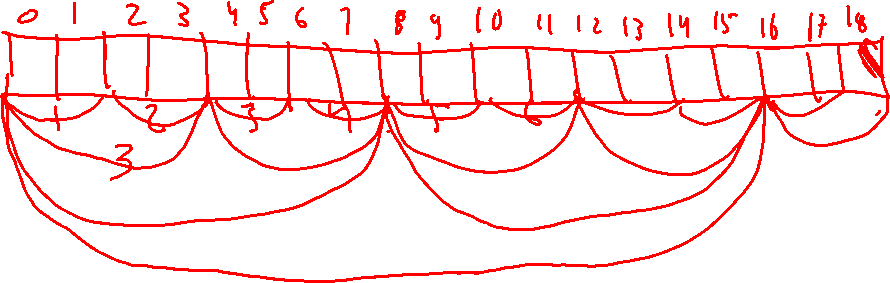 0 1 2 3 4 5 6 7 8 9 10 11 12 13 14 15 16 17 18
1 2 3 4 5 6
3